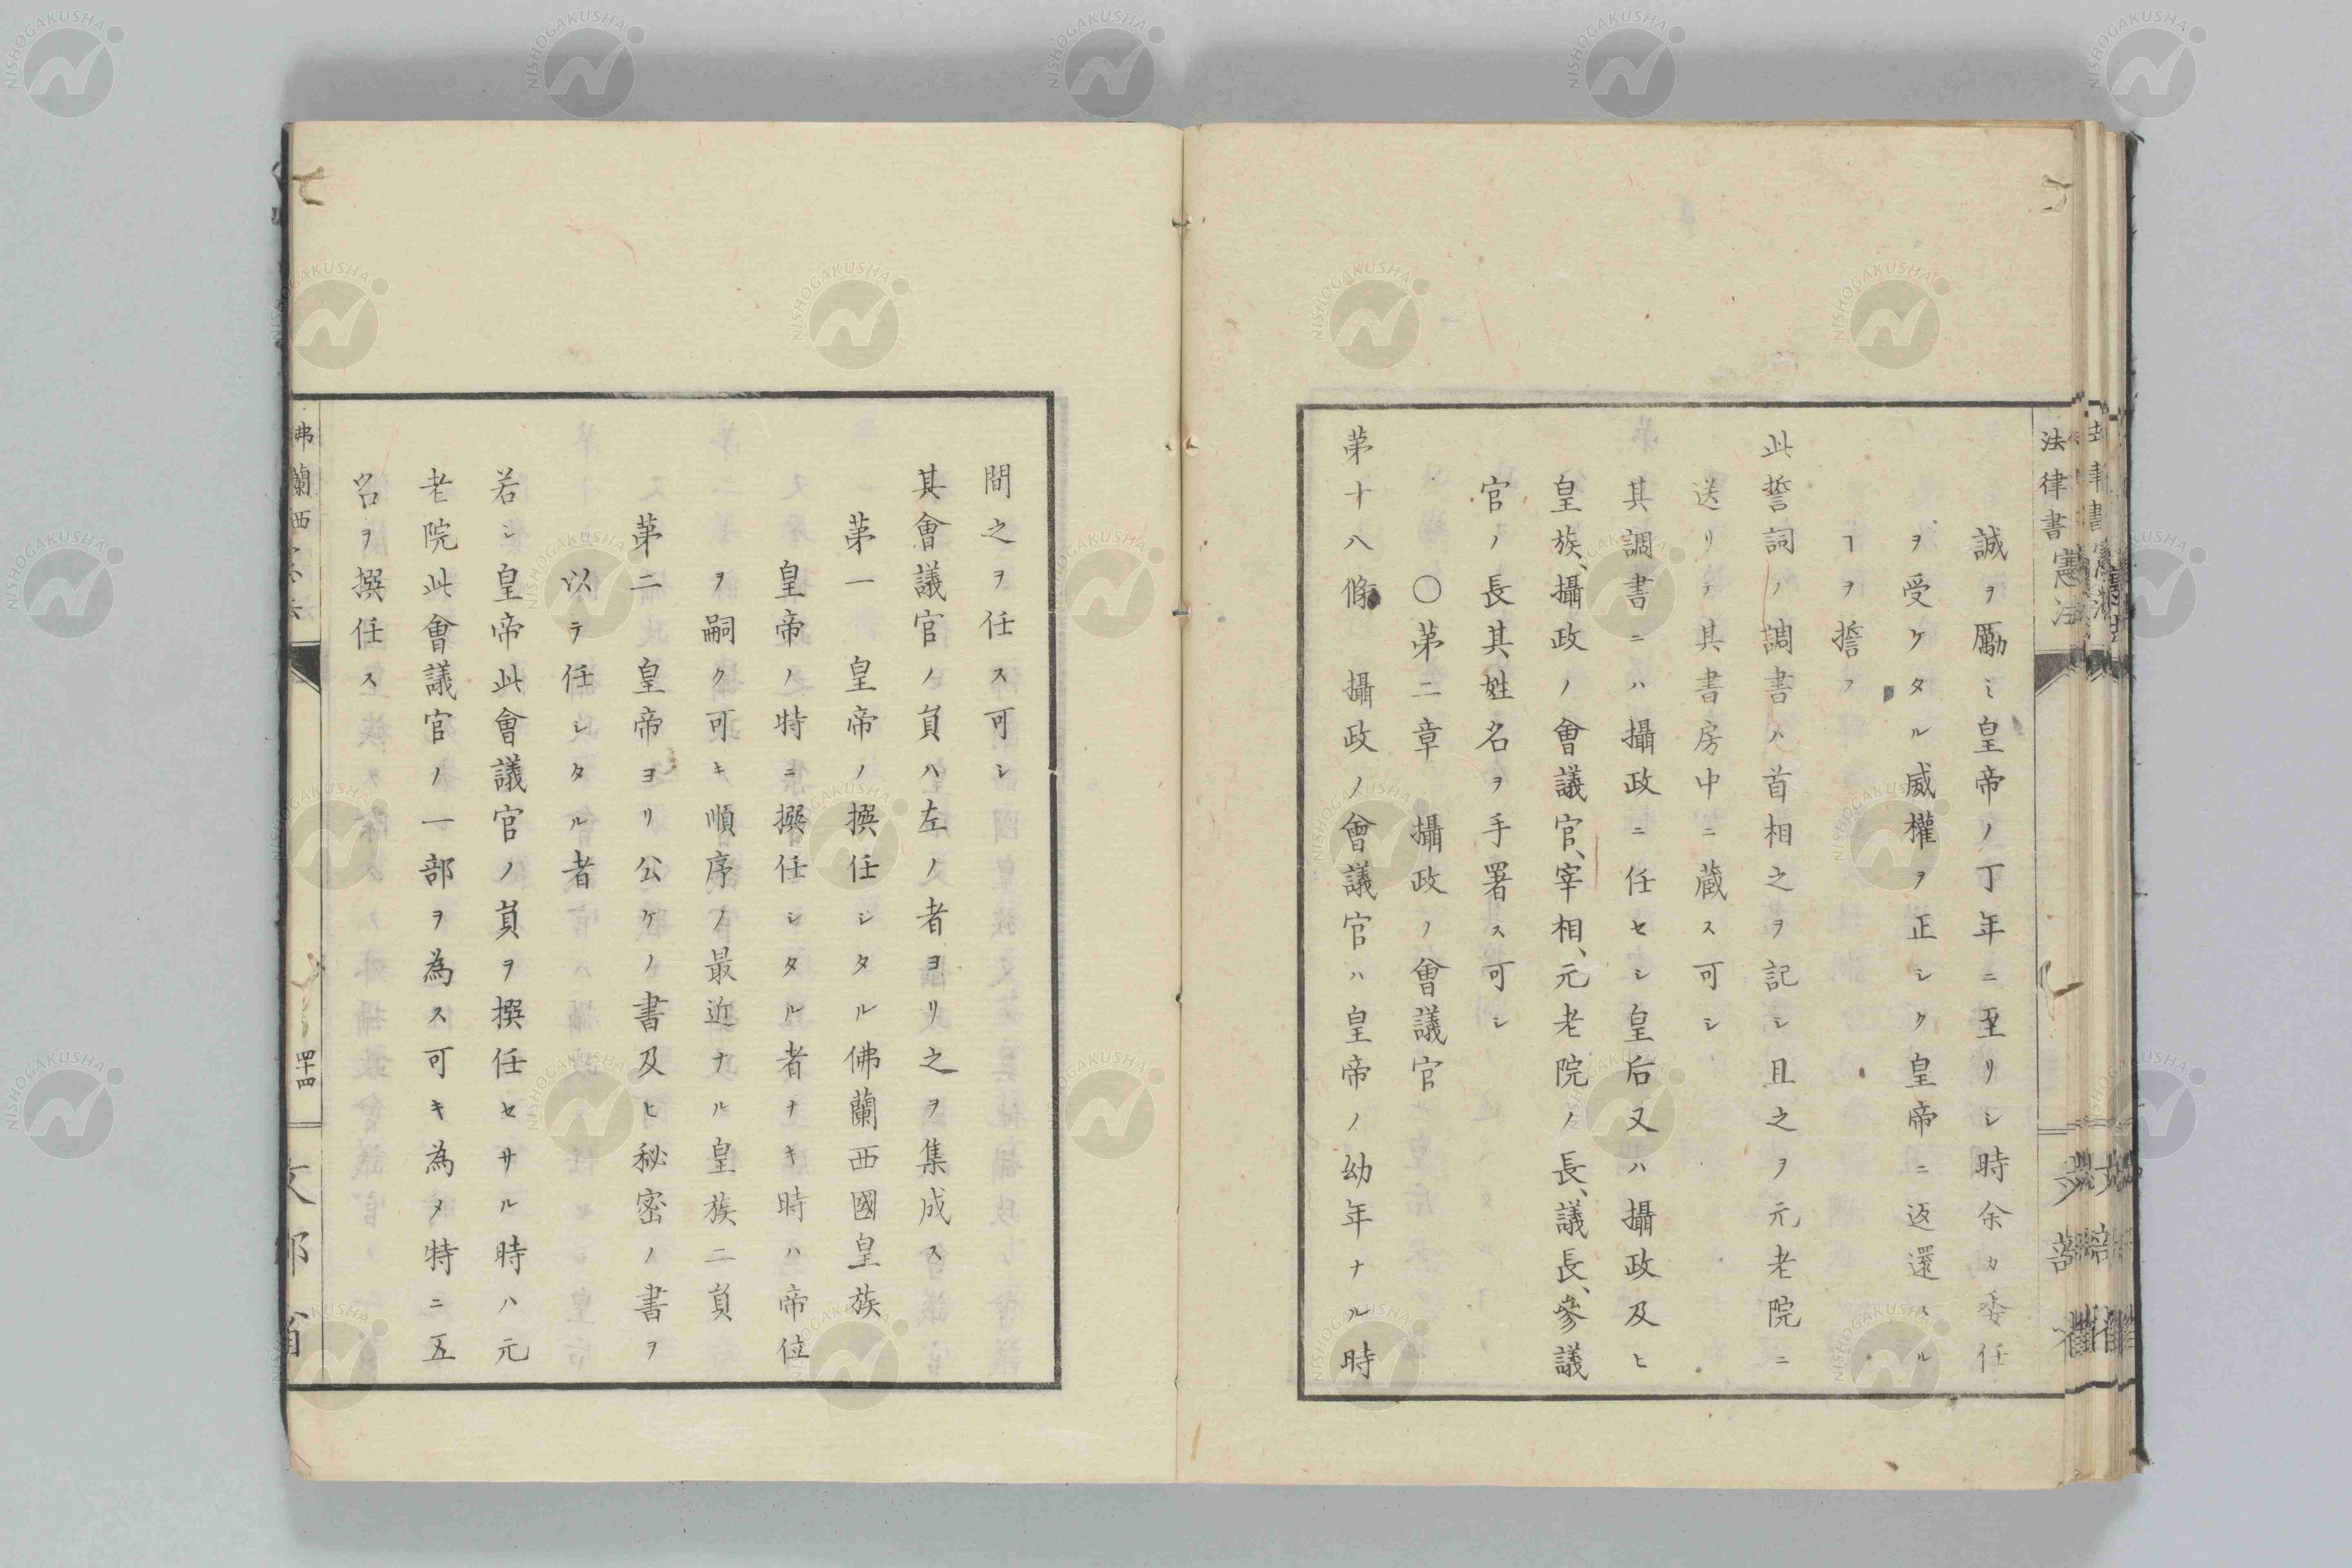 誠ヲ勵ミ皇帝ノ丁年ニ至リシ時余カ委任
ヲ受ケタル威權ヲ正シク皇帝ニ返還スル
ヿヲ誓フ
此誓詞ノ調書ハ首相之ヲ記シ且之ヲ元老院ニ
送リテ其書房中ニ蔵ス可シ
其調書ニハ攝政ニ任セシ皇后又ハ攝政及ヒ
皇族、攝政ノ會議官、宰相、元老院ノ長、議長、參議
官ノ長其姓名ヲ手署ス可シ
〇第二章 攝政ノ會議官
第十八條 攝政ノ會議官ハ皇帝ノ幼年ナル時
間之ヲ任ス可シ
其會議官ノ負ハ左ノ者ヨリ之ヲ集成ス
第一 皇帝ノ撰任シタル佛蘭西國皇族
皇帝ノ特ニ撰任シタル者ナキ時ハ帝位
ヲ嗣ク可キ順序ノ最近ナル皇族二負
第二 皇帝ヨリ公ケノ書及ヒ秘密ノ書ヲ
以テ任シタル者
若シ皇帝此會議官ノ負ヲ撰任セサル時ハ元
老院此會議官ノ一部ヲ為ス可キ為メ特ニ五
名ヲ撰任ス
法律書 憲法
四十四
NISHOGAKUSHA